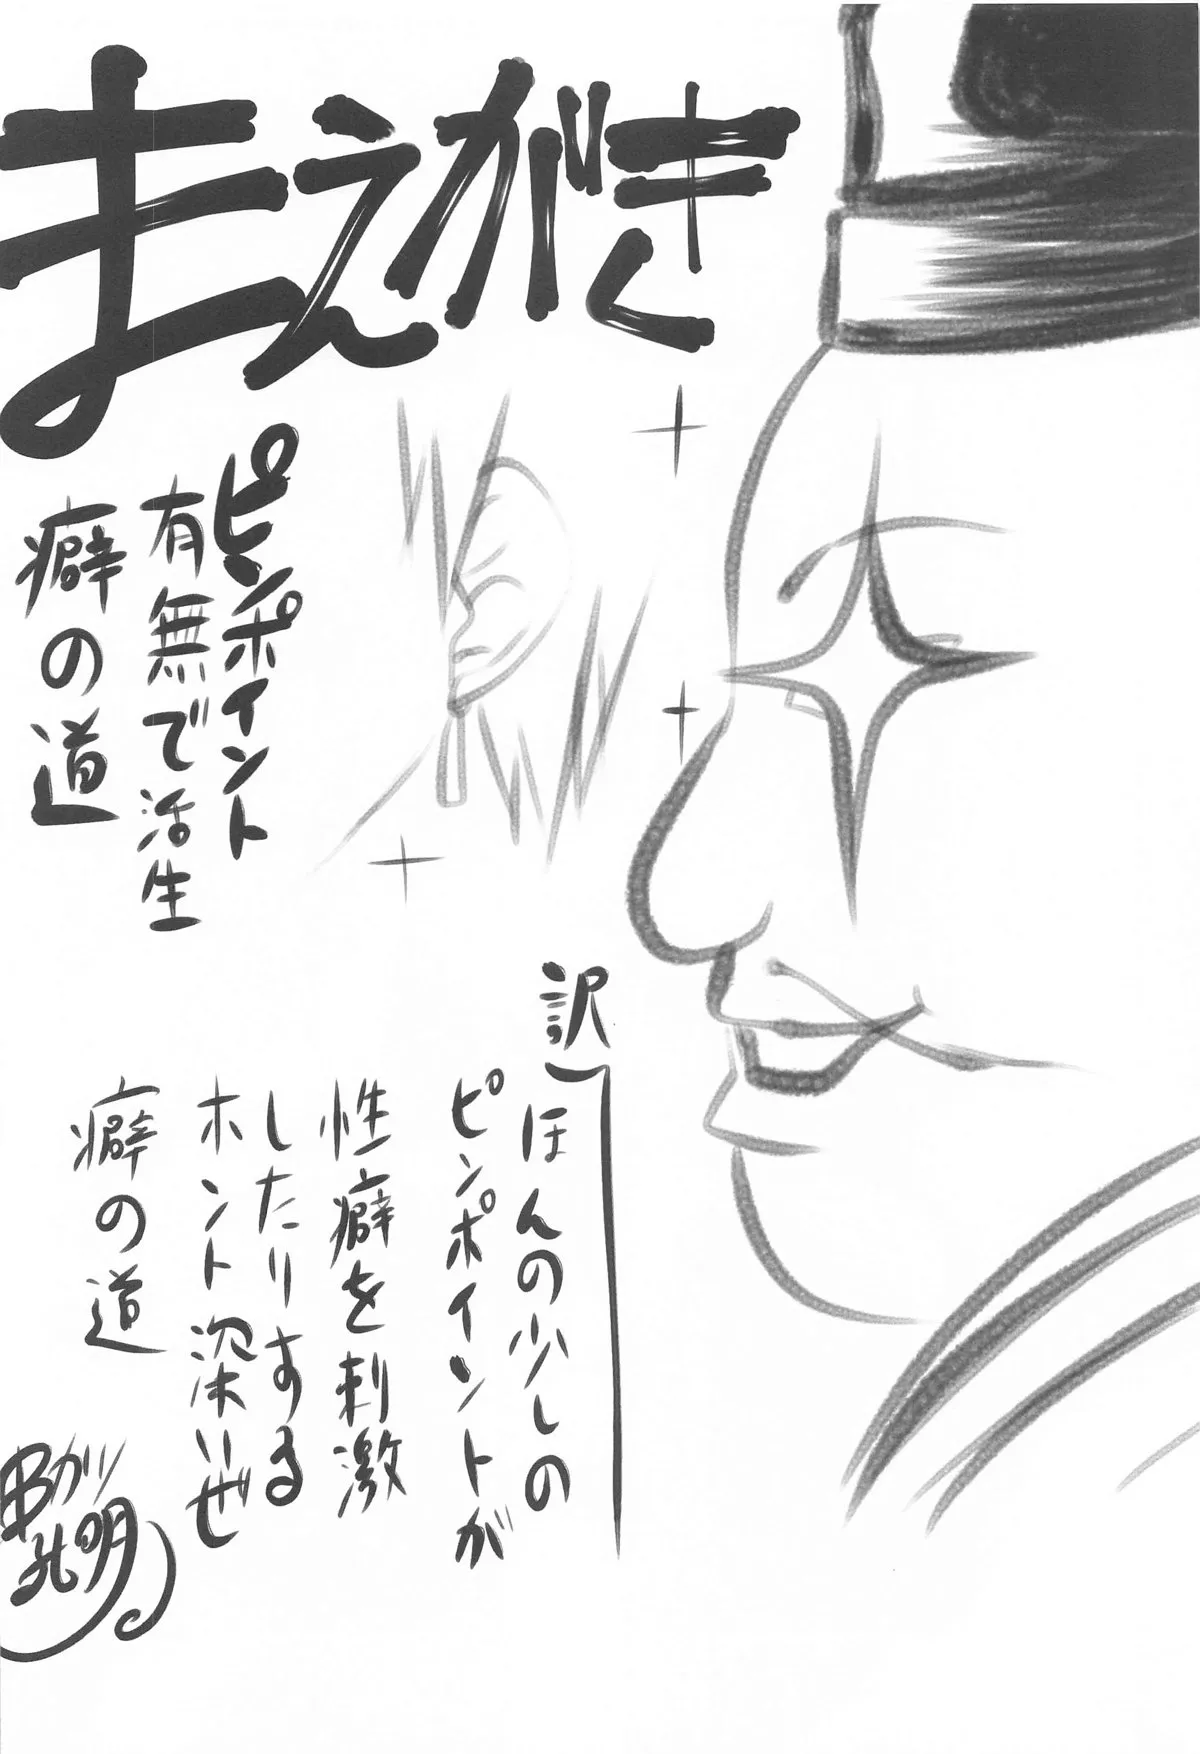 まえがき
ピンポイント
有無で活生
癖の道
訳
ほんの少しの
ピンポイントが
性癖を刺激
したりする
ホント深いぜ
癖の道
串カツ
孔明